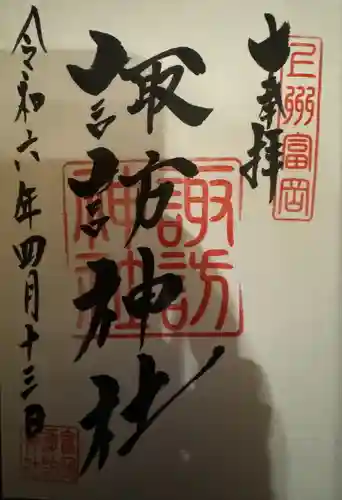 奉拝
上州富岡
諏訪神社
諏訪神社
令和六年四月十三日